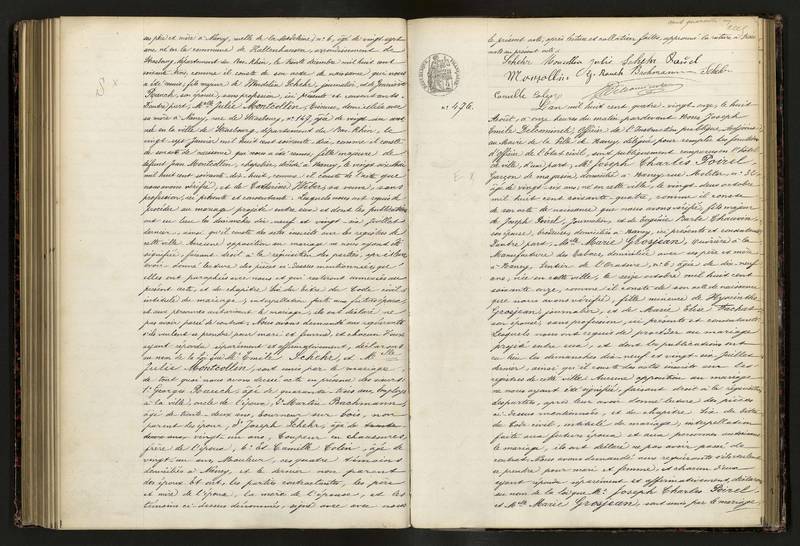 ses père et mère à Nancy, ruelle de la n° 6, âgé de vingt sept
ans né en la commune de arrondissement de
Strasbourg, département du Bas-Rhin, le trente décembre mil huit cent
soixante trois, comme il conste de son acte de naissance qui nous
a été remis, fils majeur de Wendelin Schehr, journalier, et de Françoise
son épouse, sans profession, ici présents et consentants.
D'autre part, Melle Julie Montcollin, domiciliée avec
sa mère à Nancy, rue de Strasbourg, n° 149, âgée de vingt un ans
née en la ville de Strasbourg, département du Bas-Rhin, le
vingt Janvier mil huit cent soixante-dix, comme il conste
de son acte de naissance qui nous a été remis, fille majeure de
défunt Jean Montcollin, chapelier, décédé à Nancy, le vingt
mil huit cent soixante dix-huit, comme il conste de l'acte que
nous avons vérifié, et de Catherine Weber sa veuve, sans
profession, ici présente et consentante. Lesquels nous ont requis de
procéder au mariage projeté entre eux et dont les publications
ont eu lieu les dimanches dix neuf et vingt-six juillet
dernier, ainsi qu'il conste des actes inscrits sur les registres de
cette ville. Aucune opposition au mariage ne nous ayant été
signifiée, faisant droit à la réquisition des parties, après leur
avoir donné lecture des pièces ci-dessus mentionnées
elles ont paraphées avec nous et qui resteront annexées au
présent acte, et du chapitre six du titre du Code civil
intitulé du mariage, interpellation faite aux futurs époux
et aux personnes autorisant le mariage, ils ont déclaré ne
pas avoir passé de contrat. Nous avons demandé aux requérants
s'ils veulent se prendre pour mari et femme, et chacun d'eux
ayant répondu séparément et affirmativement, déclarons
au nom de la loi que Mr Emile Schehr et Melle
Julie Montcollin, sont unis par le mariage.
de tout quoi nous avons dressé acte en présence des sieurs
1° Georges âgé de quarante trois ans Employé
à la ville, oncle de l'époux, 2° Martin Bachmann
âgé de trente-deux ans, tourneur sur bois, non
parent des époux, 3° Joseph Schehr, âgé de
vingt un ans, Coupeur en chaussures,
frère de l'époux, 4° et Camille Colin, âgé de
vingt un ans, Mouleur, ces quatre témoins
domiciliés à Nancy, et le dernier non parent
des époux. Et ont, les parties contractantes, les père
et mère de l'époux, la mère de l'épouse, et les
témoins ci-dessus dénommés, signé avec avec nous
le présent acte, après lecture et collation faites, approuvé la rature de deux
mots au présent acte.
Schehr
Bachmann Schehr
Camille Colin
N° 476.
L'an mil huit cent quatre-vingt onze, le huit
Août, à onze heures du matin, pardevant Nous Joseph
Emile Delcominete, Officier de l'Instruction publique, Adjoint
au Maire de la Ville de Nancy, délégué pour remplir les fonctions
d'officier de l'état civil, sont publiquement comparus en l'hôtel
de ville, d'une part, Mr Joseph Charles Poirel
Garçon de magasin, domicilié à Nancy, rue Molitor n° 32
âgé de vingt-six ans, né en cette ville, le vingt deux octobre
mil huit cent soixante quatre, comme il conste
de son acte de naissance que nous avons vérifié, fils majeur
de Joseph Poirel, journalier, et de Eugénie Barbe Chauvin,
son épouse, domiciliés à Nancy, ici présents et consentants.
D'autre part, Melle Marie Grosjean, Ouvrière à la
Manufacture des tabacs, domiciliée avec ses père et mère
à Nancy, Sentier de l'Oratoire, n° 6, âgée de dix-neuf
ans, née en cette ville, le seize octobre mil huit cent
soixante onze, comme il conste de son acte de naissance
que nous avons vérifié, fille mineure de Hyacinthe
Grosjean, journalier, et de Marie Elise
son épouse, sans profession, ici présents et consentants.
Lesquels nous ont requis de procéder au mariage
projeté entre eux, et dont les publications ont
eu lieu les dimanches dix neuf et vingt-six Juillet
dernier, ainsi qu'il conste des actes inscrits sur les
registres de cette ville. Aucune opposition au mariage
ne nous ayant été signifiée, faisant droit à la réquisition
des parties, après leur avoir donné lecture des pièces
ci-dessus mentionnées, et du chapitre six du titre
du Code civil, intitulé du mariage, interpellation
faite aux futurs époux et aux personnes autorisant
le mariage, ils ont déclaré ne pas avoir passé de
contrat. Nous avons demandé aux requérants s'ils veulent
se prendre pour mari et femme, et chacun d'eux
ayant répondu séparément et affirmativement, déclarons
au nom de la loi que Mr Joseph Charles Poirel
et Melle Marie Grosjean, sont unis par le mariage